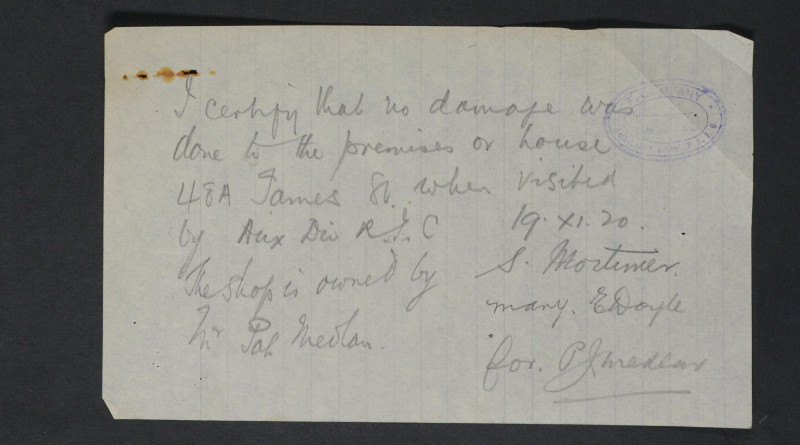 I certify that no damage was
done to the premises or house
48A James St. when visited
by Aux Div R.I.C 19.XI.20.
The shop is owned by
Mr Pat Medlar.
S. Mortimer.
Mary. E Doyle
for. P J Medlar
COMPANY